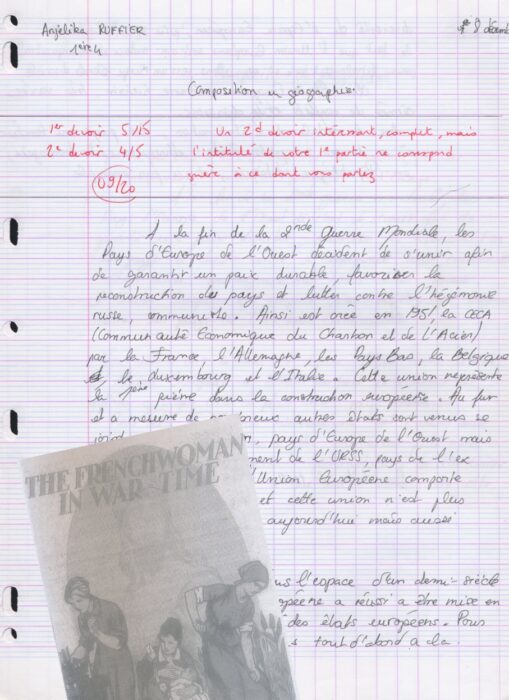 Anjelika RUFFIER
8 décem
1ère 4
Composition en géographie.
1er devoir 5/15
2e devoir 4/5
09/20
Un 2d devoir intéressant, complet, mais
l'intitulé de votre 1e partie ne correspond
guère à ce dont vous parlez
A la fin de la 2nde Guerre Mondiale, les
Pays d'Europe de l'Ouest décident de s'unir afin
de garantir un paix durable, favoriser la
reconstruction des pays et lutter contre l'hégémonie
russe, communiste. Ainsi est crée en 1951 la CECA
(Communauté Economique du Charbon et de l'Acier)
par la France, l'Allemagne, les Pays Bas, la Belgique
le Luxembourg et l'Italie. Cette union représente
la 1ère pierre dans la construction européenne. Au fur
et a mesure de autres états sont venus se
pays d'Europe de l'Ouest mais
ment de l'URSS, pays de l'ex
l'Union Européene comporte
et cette union n'est plus
aujourd'hui mais aussi
THE FRENCHWOMAN
IN WAR-TIME
us l'espace d'un demi-siècle
opéene a réussi a être mise en
des états européens. Pour
tout d'abord a la